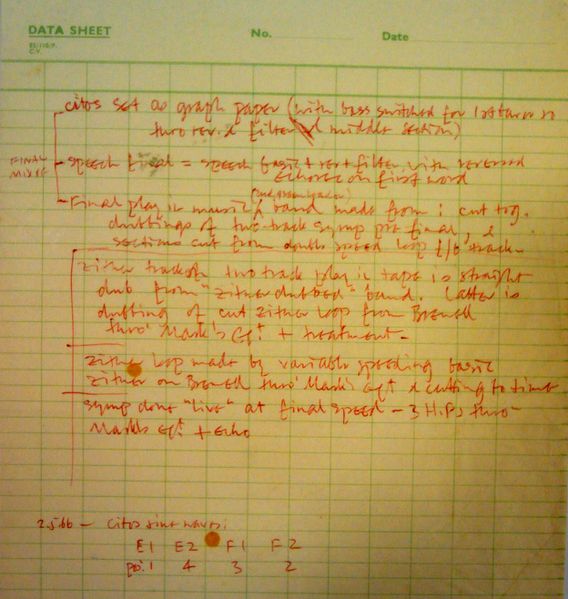 DATA SHEET No. Date
citos set as graph paper (with bass switched for 1st three
thro' rev. & filter middle section)
FINAL
speech final = speech basic + rev + filter, with reversed
echoes on first word
Final play in music band made from: cut tog.
dubbings of two-track symp pre final, &
sections cut from double speed loop f/b track
zither track of two track play in tape is straight
dub from "zither dubbed" band. Latter is
dubbing of cut zither loop from Brenell
thro' Mark's Eqt + treatment.
zither loop made by variable speeding basic
zither on Brenell thro' Mark's Eqt & cutting to time
symp done "live" at final speed - 3 H.P.s thro'
Mark's Eqt + echo
2.5.66 - citos sine waves:
E1 E2 F1 F2
1 4 3 2